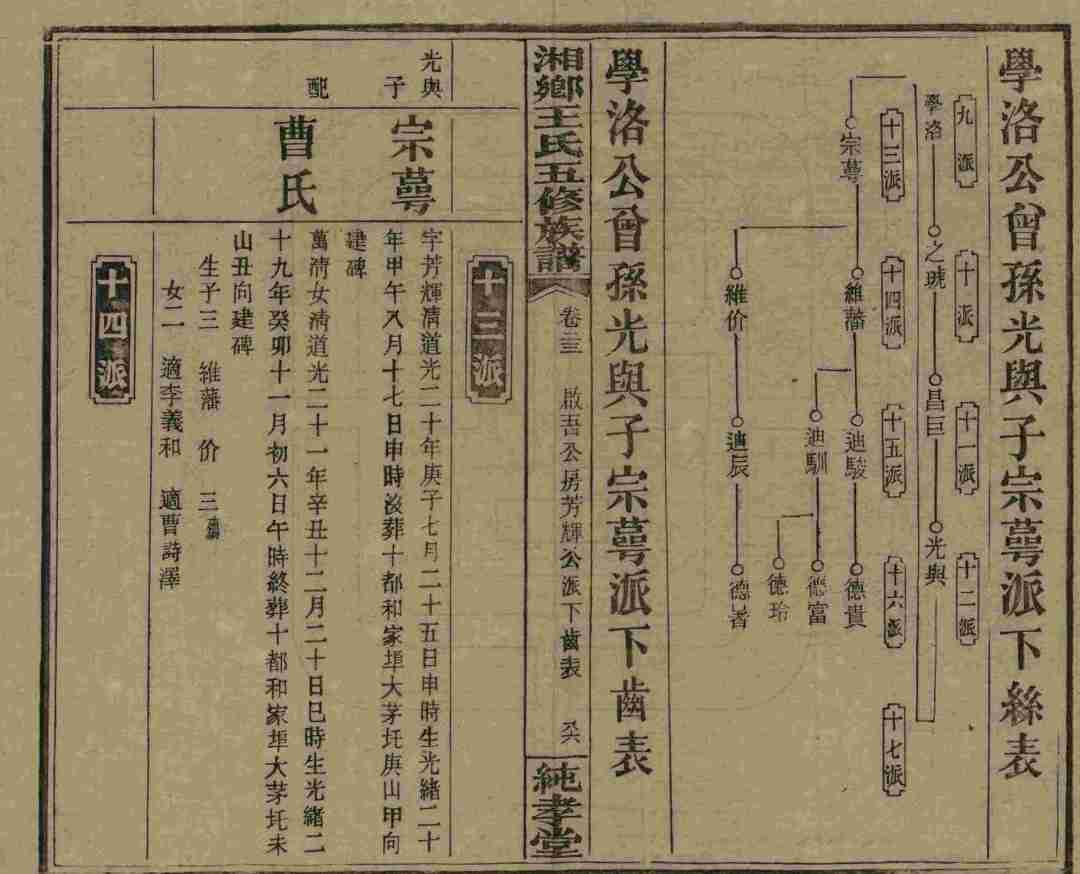 學洛公曾孫光與子宗蕚派下絲表
九派
十派
十一派
十二派
學洛
之琥
昌巨
光與
十三派
十四派
十五派
十六派
十七派
宗蕚
維藩
迪駿
德貴
迪馴
德富
德玲
維价
迪辰
德著
學洛公曾孫光與子宗蕚派下齒表
湘鄉王氏五修族譜
卷三
啟吾公房芳輝公派下齒表
純孝堂
十三派
光與子
宗蕚
字芳輝清道光二十年庚子七月二十五日申時生光緒二十
年甲午八月十七日申時沒葬十都和家埠大茅圫庚山甲向
建碑
配
曹氏
萬清女清道光二十一年辛丑十二月二十日巳時生光緒二
十九年癸卯十一月初六日午時終葬十都和家埠大茅圫未
山丑向建碑
生子三 維藩 价 三
女二 適李義和 適曹詩澤
十四派